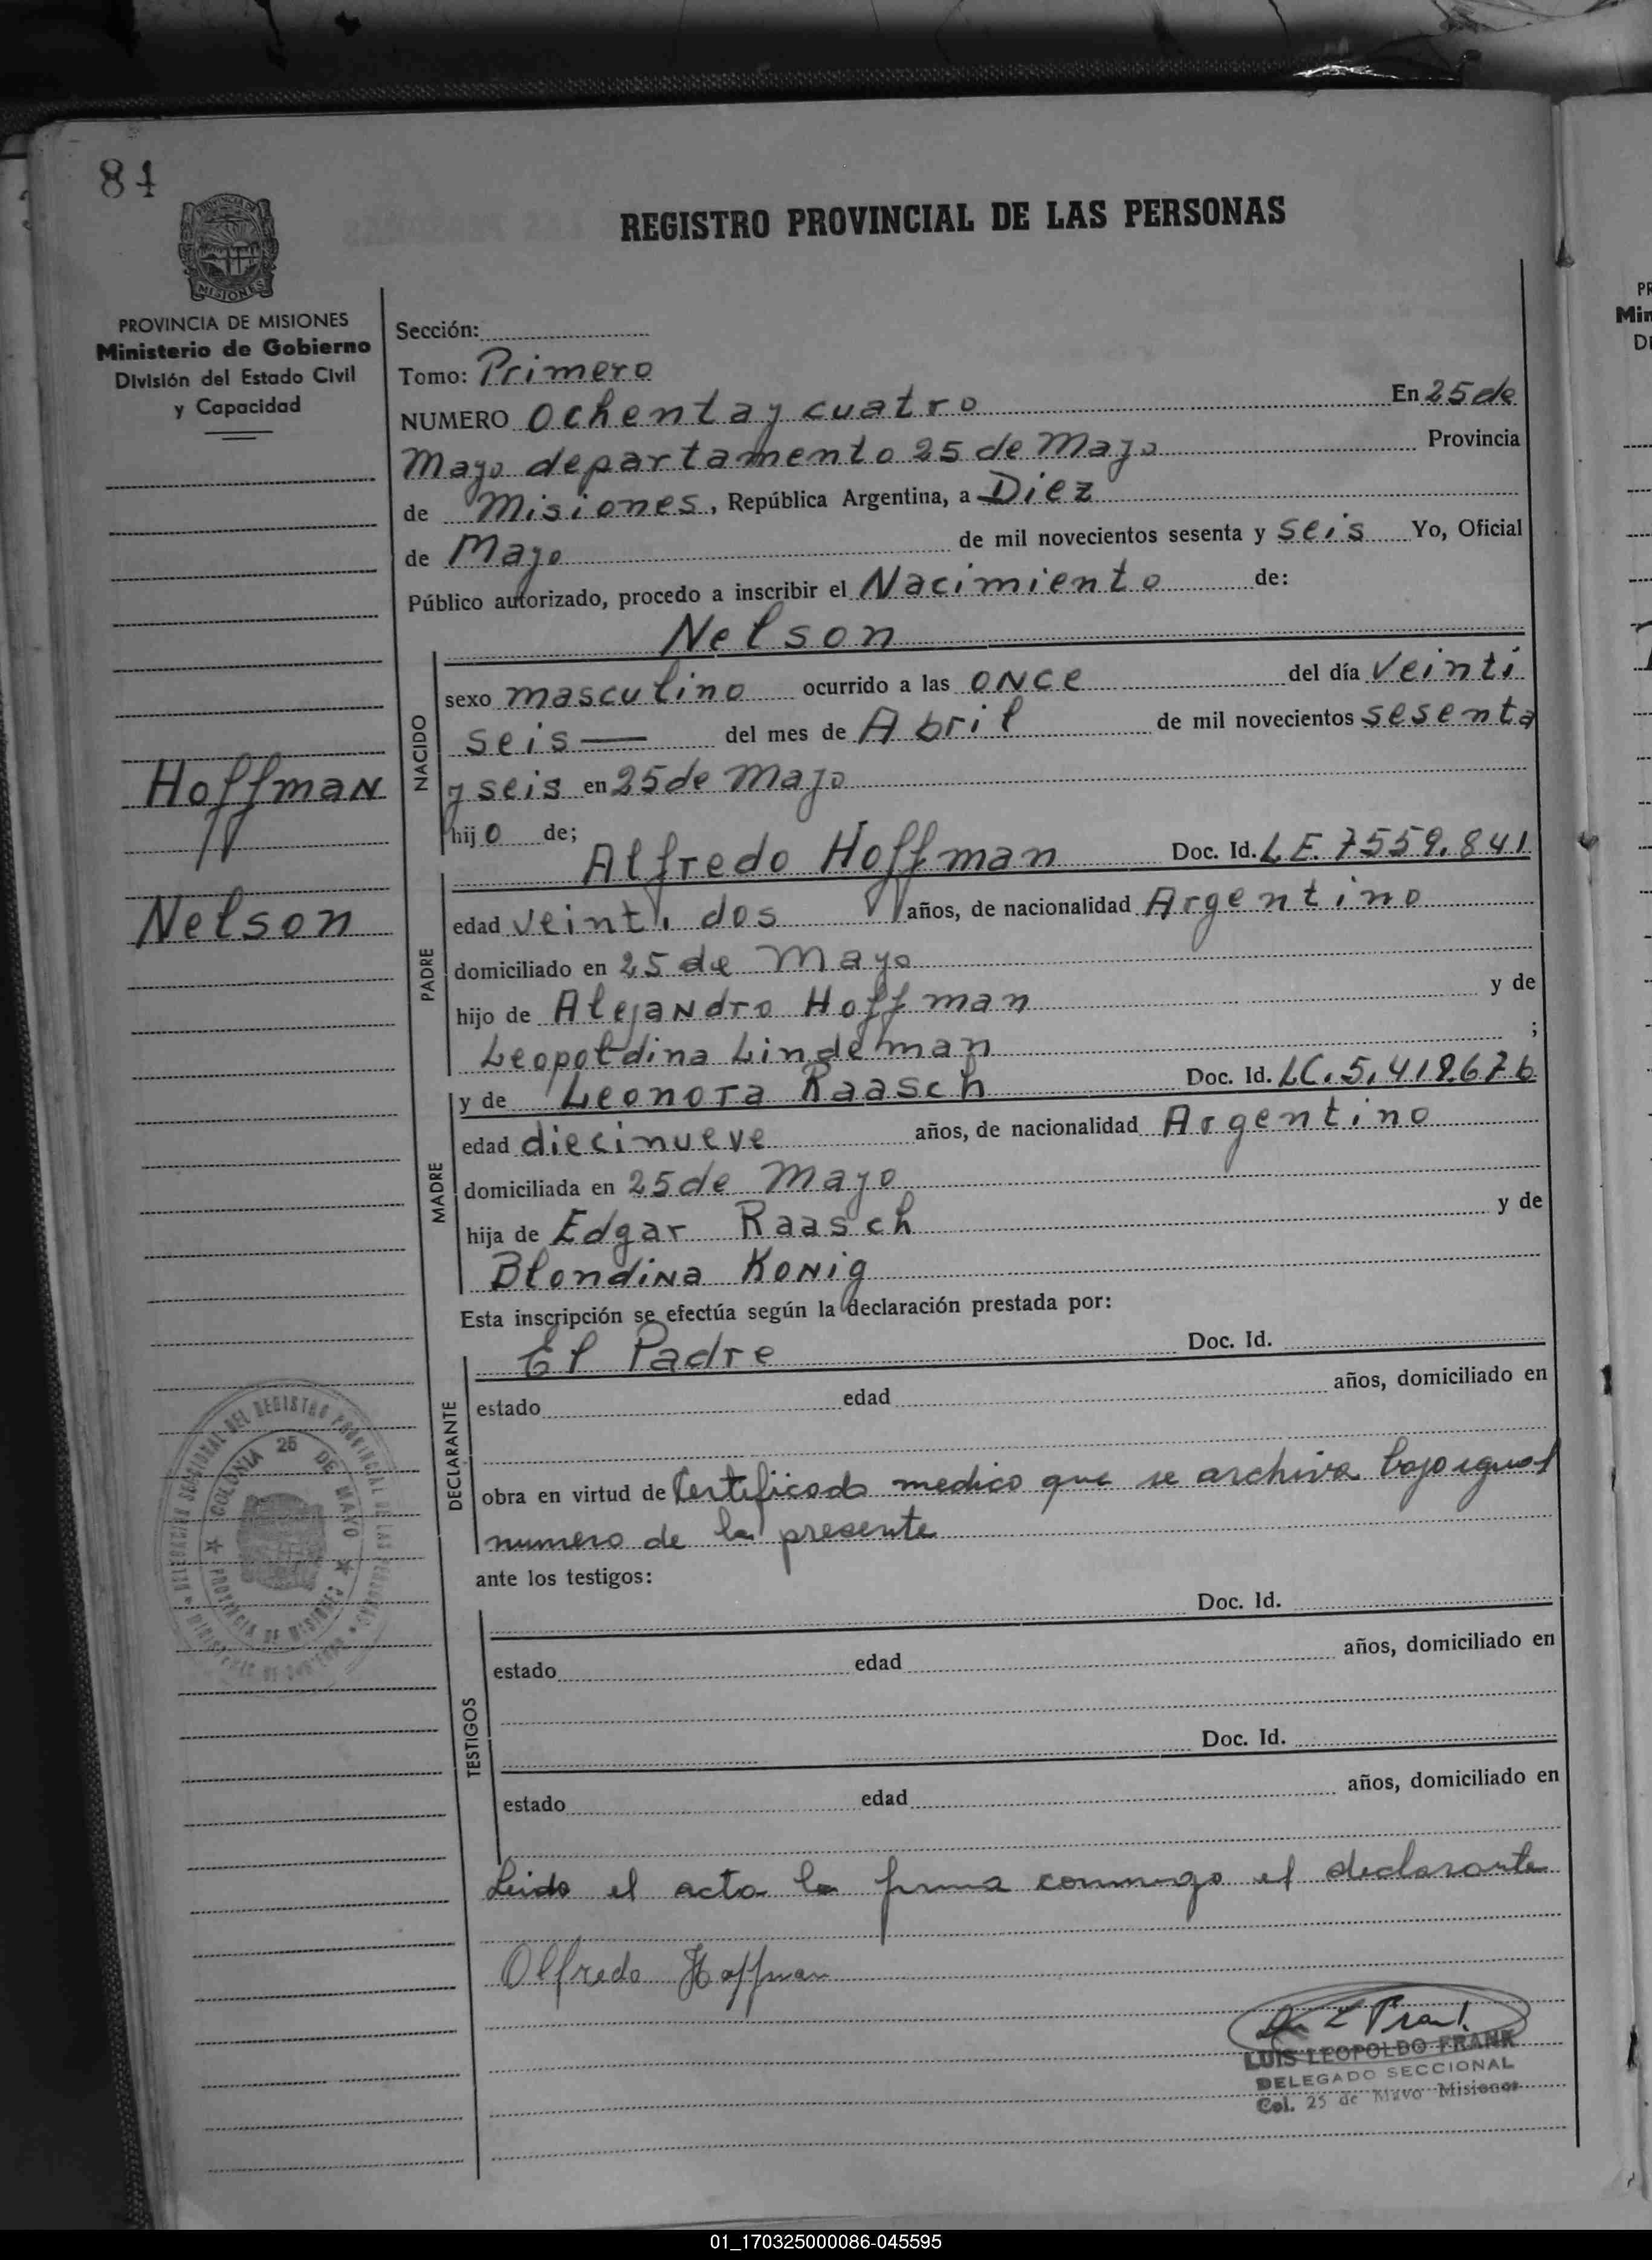 84
REGISTRO PROVINCIAL DE LAS PERSONAS
MISIONES
PROVINCIA DE MISIONES
Ministerio de Gobierno
División del Estado Civil
y Capacidad
Hoffman
Nelson
Sección:
Tomo: Primero
NUMERO Ochenta y cuatro En 25 de
Mayo departamento 25 de Mayo Provincia
de Misiones, República Argentina, a Diez
de Mayo de mil novecientos sesenta y seis Yo, Oficial
Público autorizado, procedo a inscribir el Nacimiento de:
Nelson
NACIDO
sexo masculino ocurrido a las once del día veinti
seis — del mes de Abril de mil novecientos sesenta
y seis en 25 de Mayo
hijo de;
PADRE
Alfredo Hoffman Doc. Id. L.E. 7559.841
edad veinti dos años, de nacionalidad Argentino
domiciliado en 25 de Mayo
hijo de Alejandro Hoffman y de
Leopoldina Lindeman ;
MADRE
y de Leonora Raasch Doc. Id. LC. 5.418.676
edad diecinueve años, de nacionalidad Argentino
domiciliada en 25 de Mayo
hija de Edgar Raasch y de
Blondina Konig
Esta inscripción se efectúa según la declaración prestada por:
DECLARANTE
El Padre Doc. Id.
estado edad años, domiciliado en
obra en virtud de Certificado medico que se archiva bajo igual
numero de la presente
ante los testigos:
TESTIGOS
Doc. Id.
estado edad años, domiciliado en
Doc. Id.
estado edad años, domiciliado en
Leido el acta la firma conmigo el declarante
Alfredo Hoffman
LUIS LEOPOLDO FRANK
DELEGADO SECCIONAL
Col. 25 de Mayo Misiones
DELEGACION SECCIONAL DEL REGISTRO PROVINCIAL DE LAS PERSONAS
COLONIA 25 DE MAYO
PROVINCIA DE MISIONES
01_170325000086-045595